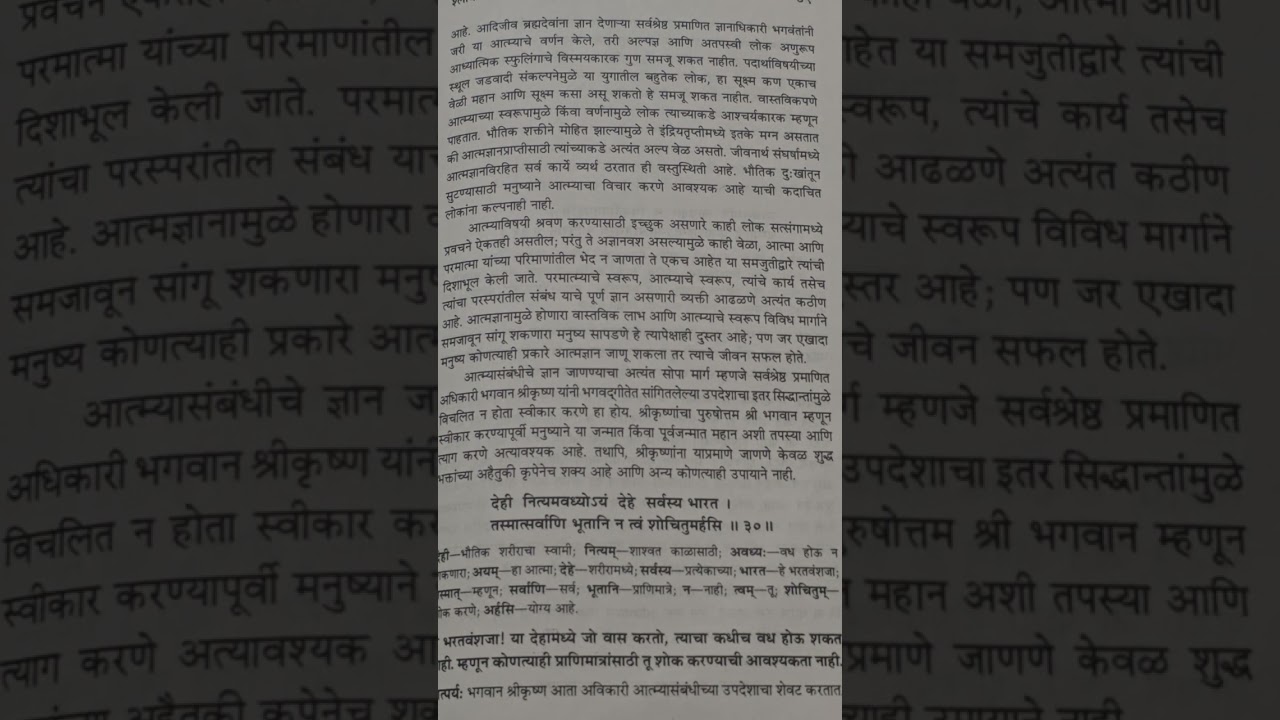 आहे. आदिजीव ब्रह्मदेवांना ज्ञान देणाऱ्या सर्वश्रेष्ठ प्रमाणित ज्ञानाधिकारी भगवंतांनी
जरी या आत्म्याचे वर्णन केले, तरी अल्पज्ञ आणि अतपस्वी लोक अणुरूप
आध्यात्मिक स्फुलिंगाचे विस्मयकारक गुण समजू शकत नाहीत. पदार्थाविषयीच्या
स्थूल जडवादी संकल्पनेमुळे या युगातील बहुतेक लोक, हा सूक्ष्म कण एकाच
वेळी महान आणि सूक्ष्म कसा असू शकतो हे समजू शकत नाहीत. वास्तविकपणे
आत्म्याच्या स्वरूपामुळे किंवा वर्णनामुळे लोक त्याच्याकडे आश्चर्यकारक म्हणून
पाहतात. भौतिक शक्तीने मोहित झाल्यामुळे ते इंद्रियतृप्तीमध्ये इतके मग्न असतात
की आत्मज्ञानप्राप्तीसाठी त्यांच्याकडे अत्यंत अल्प वेळ असतो. जीवनार्थ संघर्षामध्ये
आत्मज्ञानविरहित सर्व कार्ये व्यर्थ ठरतात ही वस्तुस्थिती आहे. भौतिक दुःखांतून
सुटण्यासाठी मनुष्याने आत्म्याचा विचार करणे आवश्यक आहे याची कदाचित
लोकांना कल्पनाही नाही.
आत्म्याविषयी श्रवण करण्यासाठी इच्छुक असणारे काही लोक सत्संगामध्ये
प्रवचने ऐकतही असतील; परंतु ते अज्ञानवश असल्यामुळे काही वेळा, आत्मा आणि
परमात्मा यांच्या परिमाणांतील भेद न जाणता ते एकच आहेत या समजुतीद्वारे त्यांची
दिशाभूल केली जाते. परमात्म्याचे स्वरूप, आत्म्याचे स्वरूप, त्यांचे कार्य तसेच
त्यांचा परस्परांतील संबंध याचे पूर्ण ज्ञान असणारी व्यक्ती आढळणे अत्यंत कठीण
आहे. आत्मज्ञानामुळे होणारा वास्तविक लाभ आणि आत्म्याचे स्वरूप विविध मार्गाने
समजावून सांगू शकणारा मनुष्य सापडणे हे त्यापेक्षाही दुस्तर आहे; पण जर एखादा
मनुष्य कोणत्याही प्रकारे आत्मज्ञान जाणू शकला तर त्याचे जीवन सफल होते.
आत्म्यासंबंधीचे ज्ञान जाणण्याचा अत्यंत सोपा मार्ग म्हणजे सर्वश्रेष्ठ प्रमाणित
अधिकारी भगवान श्रीकृष्ण यांनी भगवद्गीतेत सांगितलेल्या उपदेशाचा इतर सिद्धान्तांमुळे
विचलित न होता स्वीकार करणे हा होय. श्रीकृष्णांचा पुरुषोत्तम श्री भगवान म्हणून
स्वीकार करण्यापूर्वी मनुष्याने या जन्मात किंवा पूर्वजन्मात महान अशी तपस्या आणि
त्याग करणे अत्यावश्यक आहे. तथापि, श्रीकृष्णांना याप्रमाणे जाणणे केवळ शुद्ध
भक्तांच्या अहैतुकी कृपेनेच शक्य आहे आणि अन्य कोणत्याही उपायाने नाही.
देही नित्यमवध्योऽयं देहे सर्वस्य भारत ।
तस्मात्सर्वाणि भूतानि न त्वं शोचितुमर्हसि ॥ ३० ॥
देही—भौतिक शरीराचा स्वामी; नित्यम्—शाश्वत काळासाठी; अवध्यः—वध होऊ न
शकणारा; अयम्—हा आत्मा; देहे—शरीरामध्ये; सर्वस्य—प्रत्येकाच्या; भारत—हे भरतवंशजा;
स्मात्—म्हणून; सर्वाणि—सर्व; भूतानि—प्राणिमात्रे; न—नाही; त्वम्—तू; शोचितुम्—
ोक करणे; अर्हसि—योग्य आहे.
भरतवंशजा! या देहामध्ये जो वास करतो, त्याचा कधीच वध होऊ शकत
ाही. म्हणून कोणत्याही प्राणिमात्रांसाठी तू शोक करण्याची आवश्यकता नाही.
त्पर्य: भगवान श्रीकृष्ण आता अविकारी आत्म्यासंबंधीच्या उपदेशाचा शेवट करतात